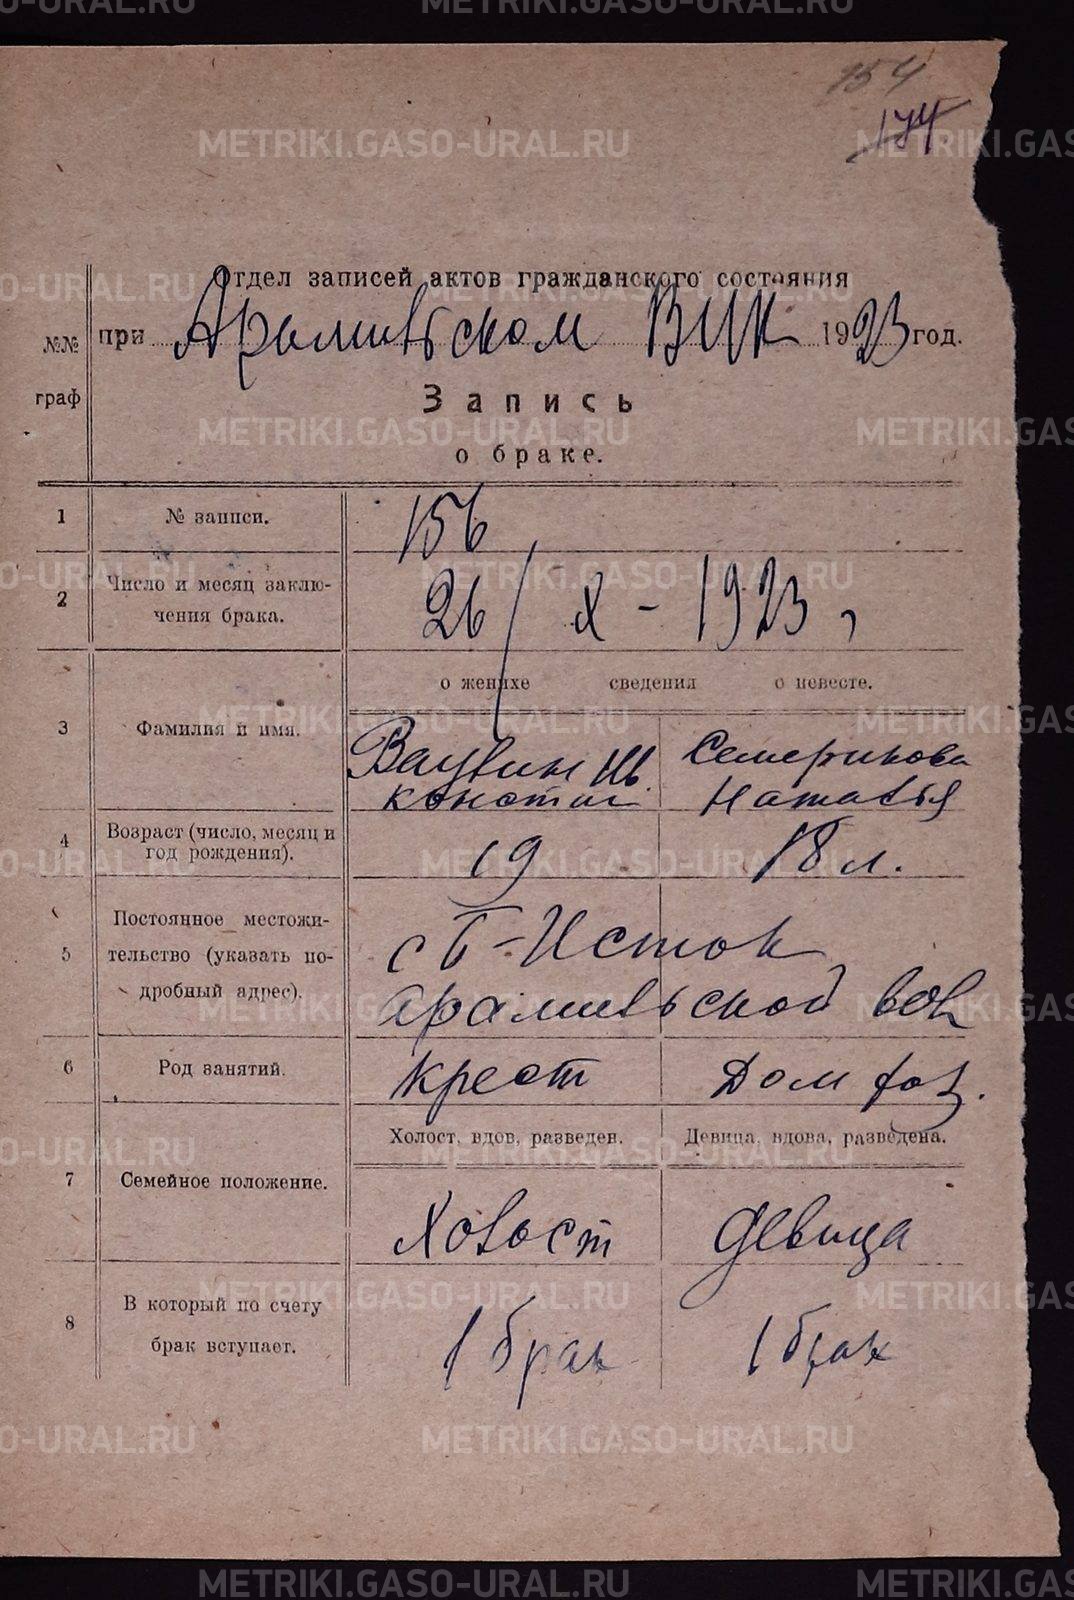 154
174
Отдел записей актов гражданского состояния
№№ граф
при Арамильском ВИК 1923 год.
Запись
о браке.
1 № записи. 156
2 Число и месяц заключения брака. 26/X - 1923 г
о женихе сведения о невесте.
3 Фамилия и имя.
Семерикова
Констан Наталья
4 Возраст (число, месяц и год рождения). 19 18 л.
5 Постоянное местожительство (указать подробный адрес).
с Б-Исток
Арамильской вол
6 Род занятий. Крест Дом хоз.
Холост, вдов, разведен. Девица, вдова, разведена.
7 Семейное положение. Холост девица
8 В который по счету брак вступает. 1 брак 1 брак
METRIKI.GASO-URAL.RU